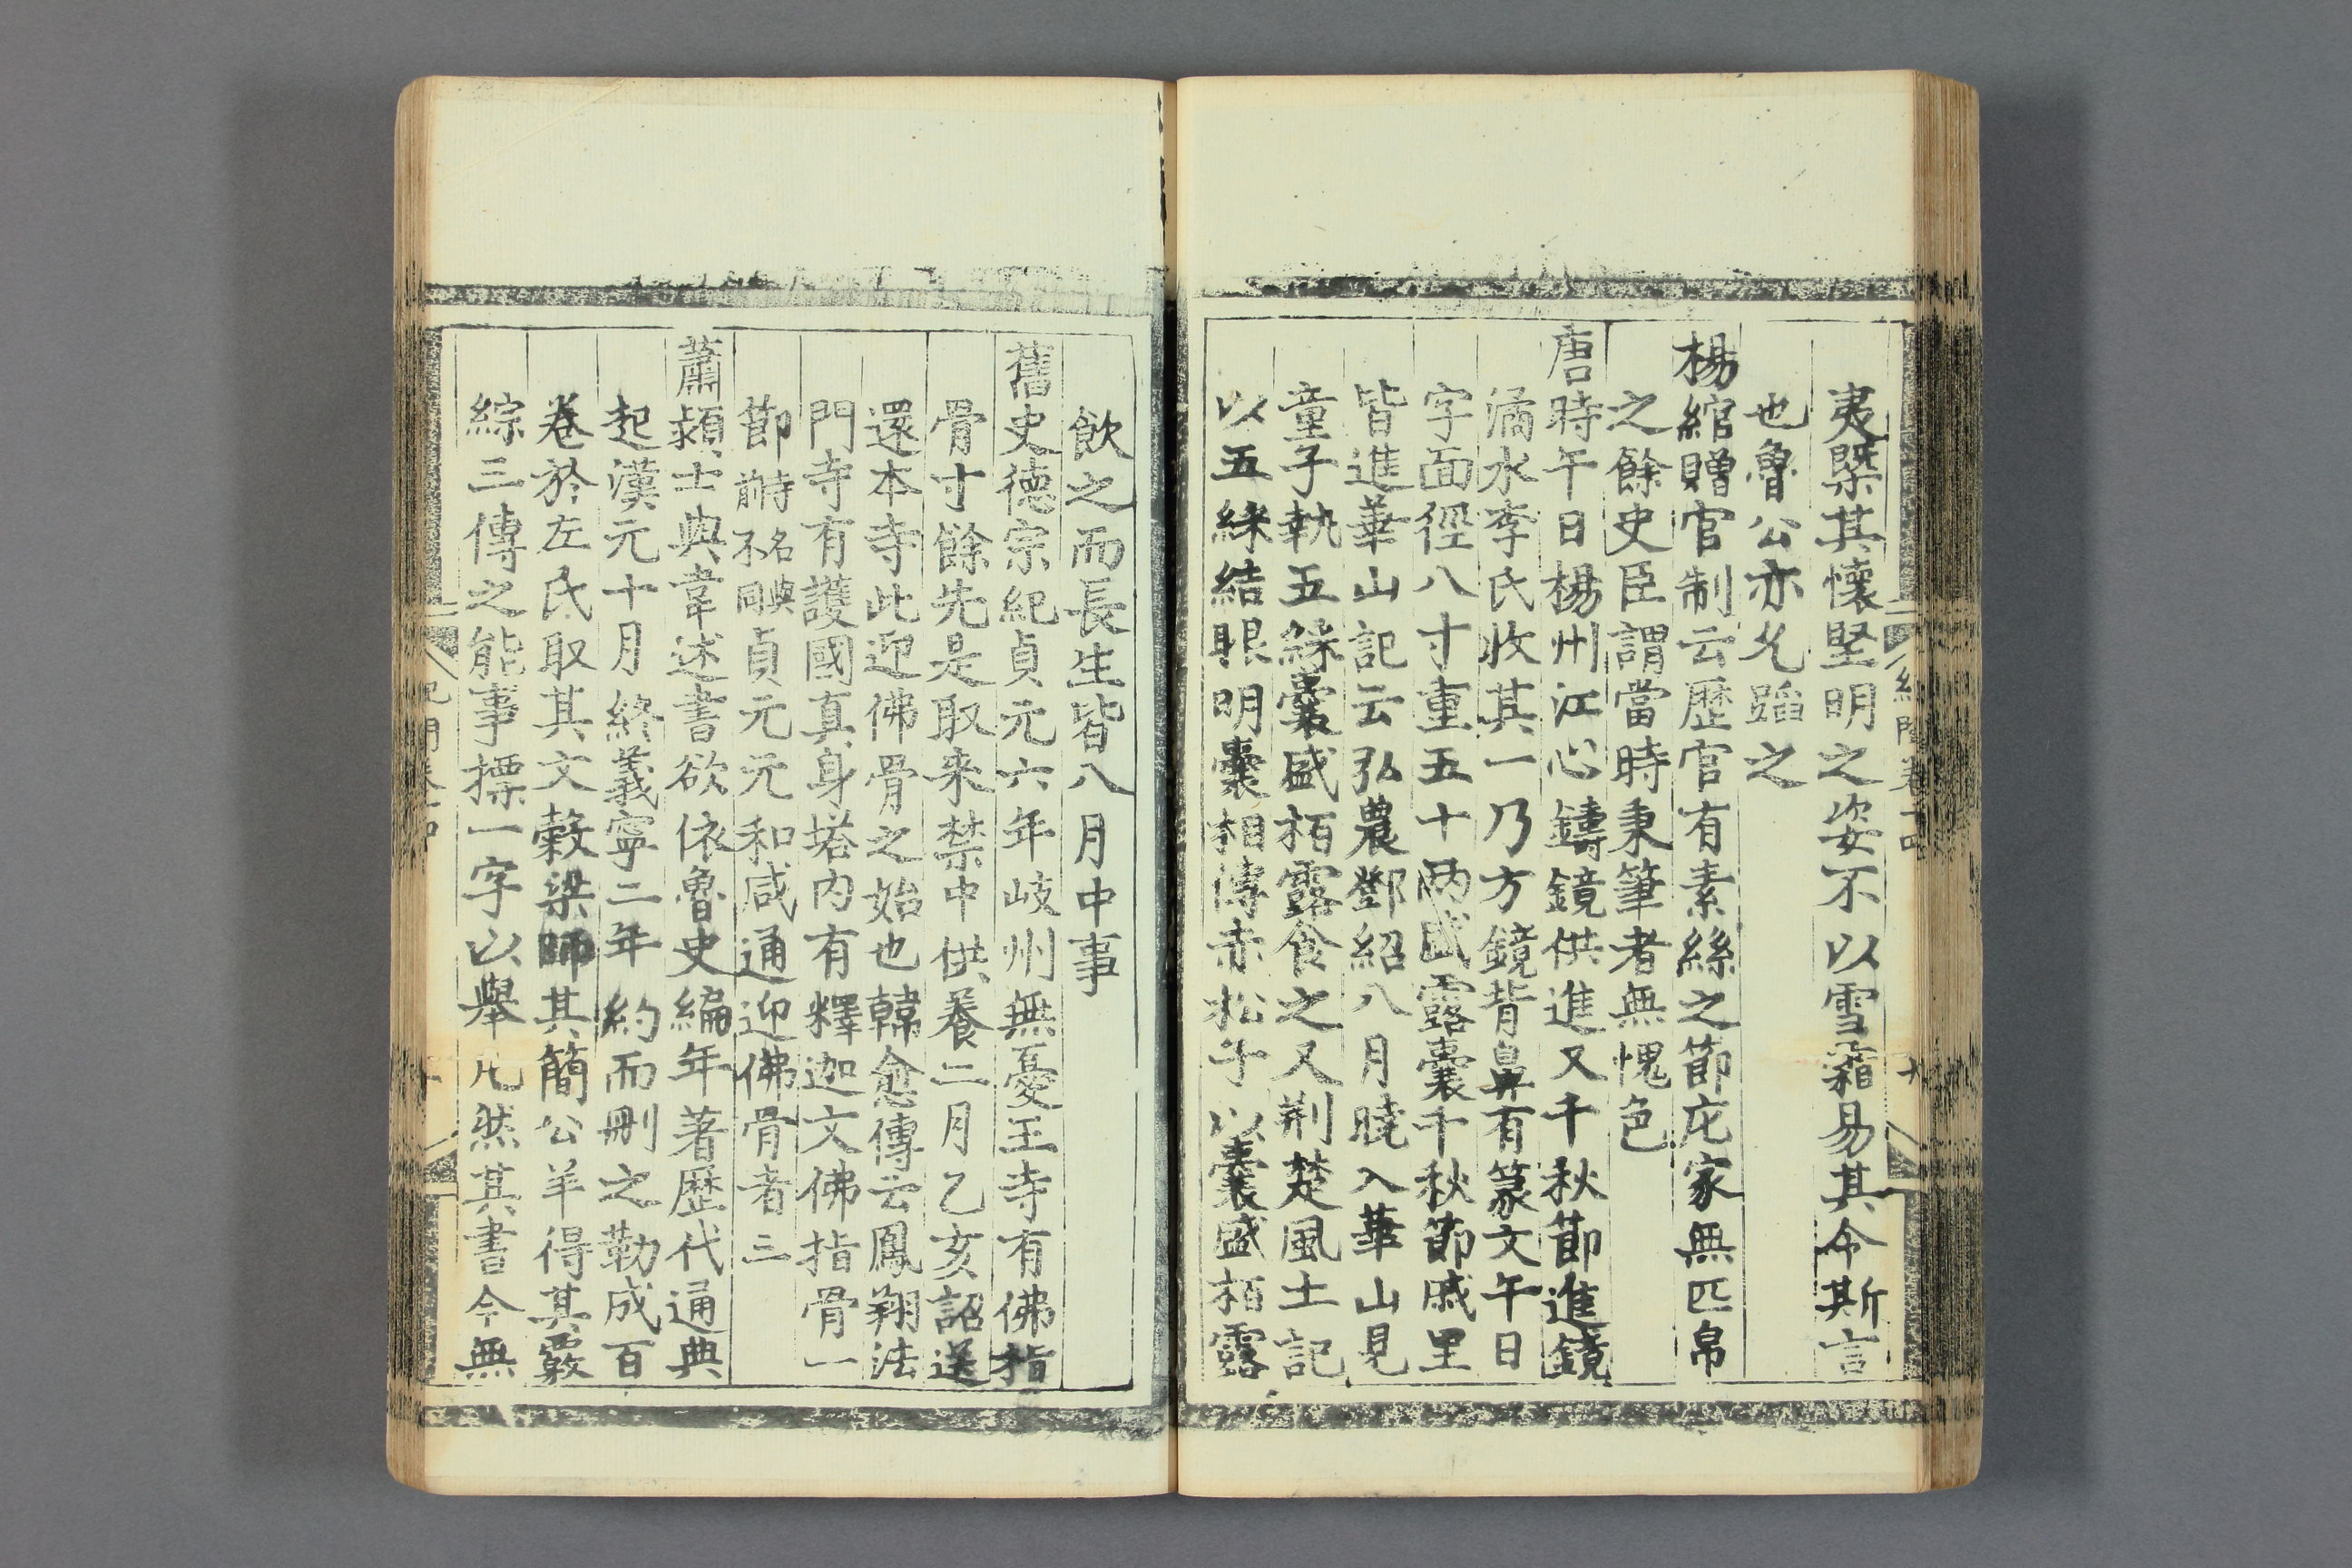 夷槩其懷堅明之姿不以雪霜易其令斯言
也魯公亦允蹈之
楊綰贈官制云歷官有素絲之節庀家無匹帛
之餘史臣謂當時秉筆者無愧色
唐時午日楊州江心鑄鏡供進又千秋節進鏡
潏水李氏收其一乃方鏡背鼻有篆文午日
字面徑八寸重五十两盛露囊千秋節戚里
皆進華山記云弘農鄧紹八月曉入華山見
童子執五綵囊盛栢露食之又荆楚風土記
以五綵結眼明囊相傳赤松子以囊盛栢露
飲之而長生皆八月中事
舊史德宗紀貞元六年岐州無憂王寺有佛指
骨寸餘先是取来禁中供養二月乙亥詔送
還本寺此迎佛骨之始也韓愈傳云鳳翔法
門寺有護國真身塔内有釋迦文佛指骨一
節前時名與不同貞元元和咸通迎佛骨者三
蕭頴士與韋述書欲依魯史編年著歷代通典
起漢元十月終義寧二年約而刪之勒成百
卷於左氏取其文穀梁師其簡公羊得其覈
綜三傳之能事摽一字以舉凡然其書今無